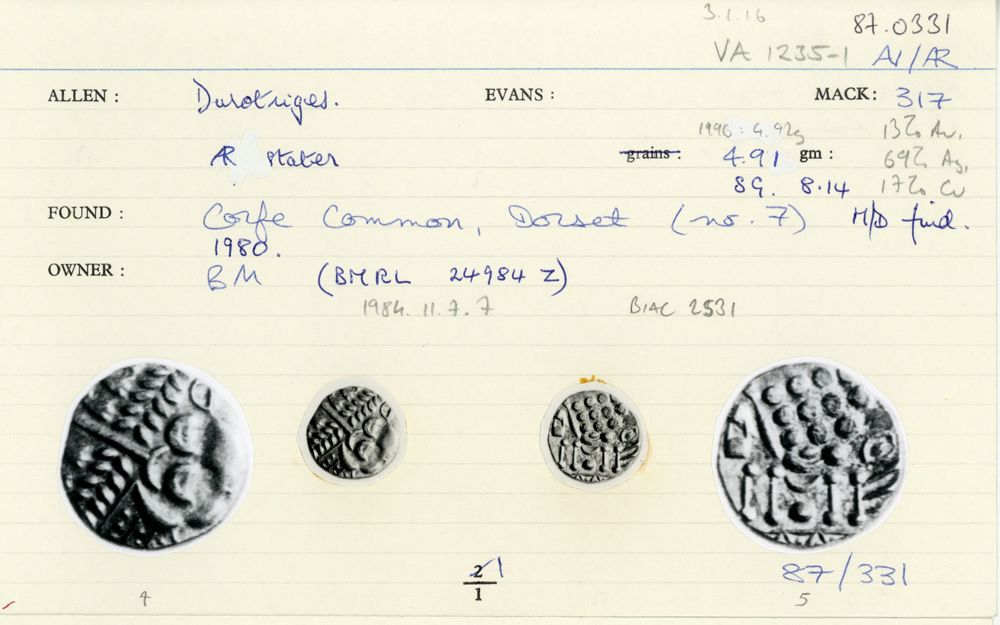 3.1.16 87.0331
VA 1235-1 AV/AR
ALLEN : Durotriges. EVANS : MACK: 317
1996: 4.92g 13% Au,
AR stater grains : 4.91 gm : 69% Ag,
SG. 8.14 17% Cu
FOUND : Corfe Common, Dorset (no. 7) M/D find.
1980.
OWNER : BM (BMRL 24984 Z)
1984. 11. 7. 7 BIAC 2531
2 1
1
87/331
4 5